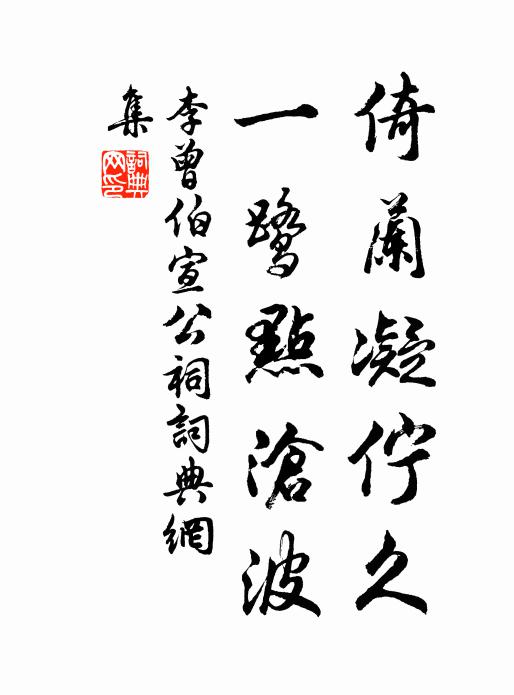 倚蘭凝佇久
一鷺點滄波
李曾伯宣公祠詞典網
集
詞典网印